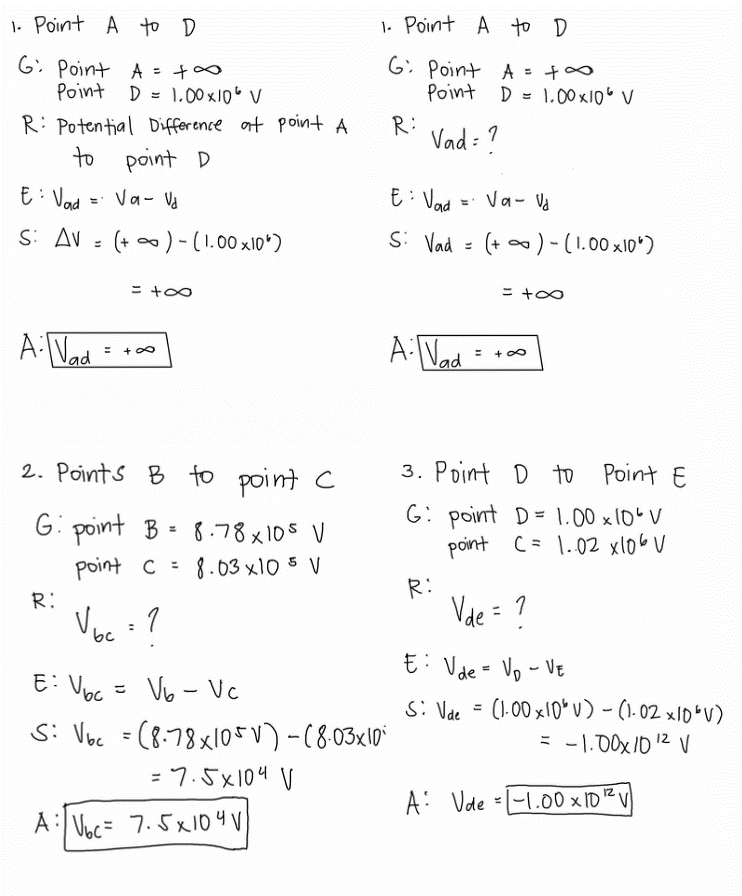 1. Point A to D
G: Point A = +∞
Point D = 1.00x10⁶ V
R: Potential Difference at point A
to point D
E: Vad = Va - Vd
S: ΔV = (+∞) - (1.00x10⁶)
= +∞
A: Vad = +∞
1. Point A to D
G: Point A = +∞
Point D = 1.00x10⁶ V
R: Vad = ?
E: Vad = Va - Vd
S: Vad = (+∞) - (1.00x10⁶)
= +∞
A: Vad = +∞
2. Points B to point C
G: point B = 8.78x10⁵ V
point C = 8.03x10⁵ V
R: Vbc = ?
E: Vbc = Vb - Vc
S: Vbc = (8.78x10⁵V) - (8.03x10
= 7.5x10⁴ V
A: Vbc = 7.5x10⁴V
3. Point D to Point E
G: point D = 1.00x10⁶ V
point C = 1.02 x10⁶ V
R: Vde = ?
E: Vde = VD - VE
S: Vde = (1.00x10⁶V) - (1.02 x10⁶V)
= -1.00x10¹² V
A: Vde = -1.00x10¹²V